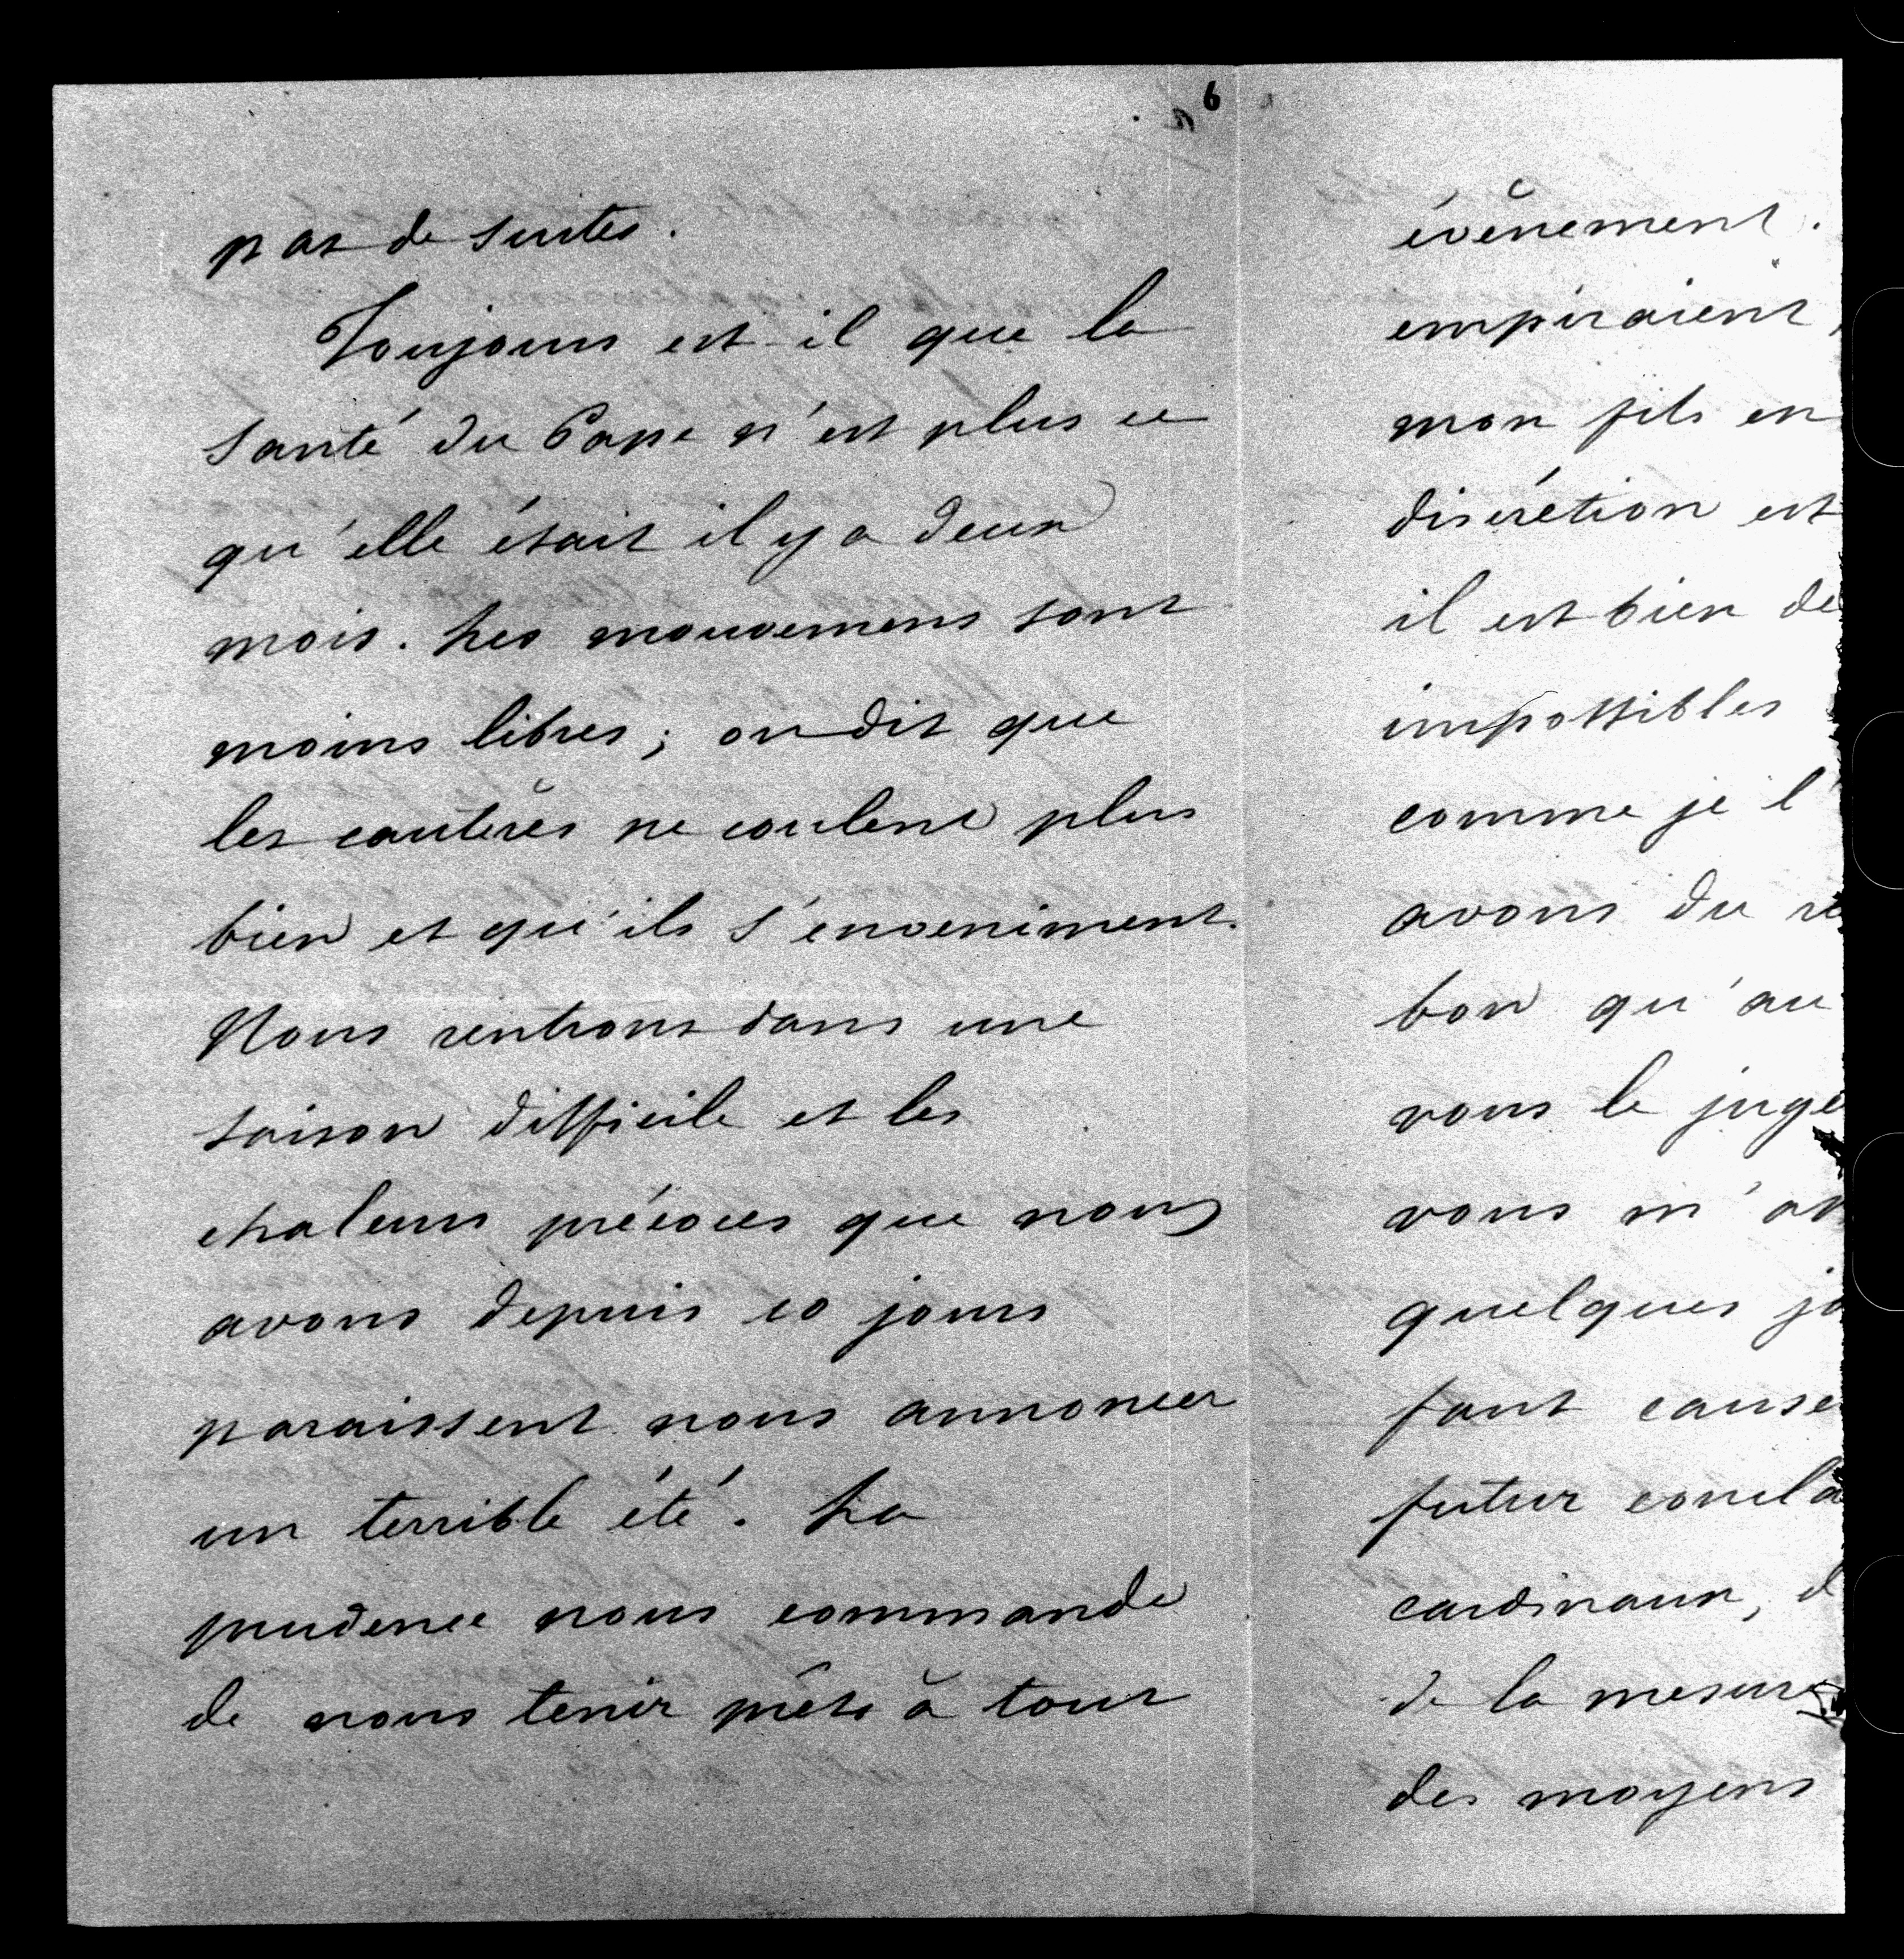 6
pas de suites.
Toujours est-il que la
santé du Pape n'est plus ce
qu'elle était il y a deux
mois. Les mouvemens sont
moins libres; on dit que
les cautères ne coulent plus
bien et qu'ils s'enveniment.
Nous rentrons dans une
saison difficile et les
chaleurs précoces que nous
avons depuis 10 jours
paraissent nous annoncer
un terrible été. La
prudence nous commande
de nous tenir prêts à tout
évènement.
empiraient,
mon fils en
discrétion est
il est bien de
impossibles
comme je l'
avons du
bon qu'au
vous le juge
vous m'
quelques
font cause
futur concla
cardinaux, d
de la mesure
des moyens